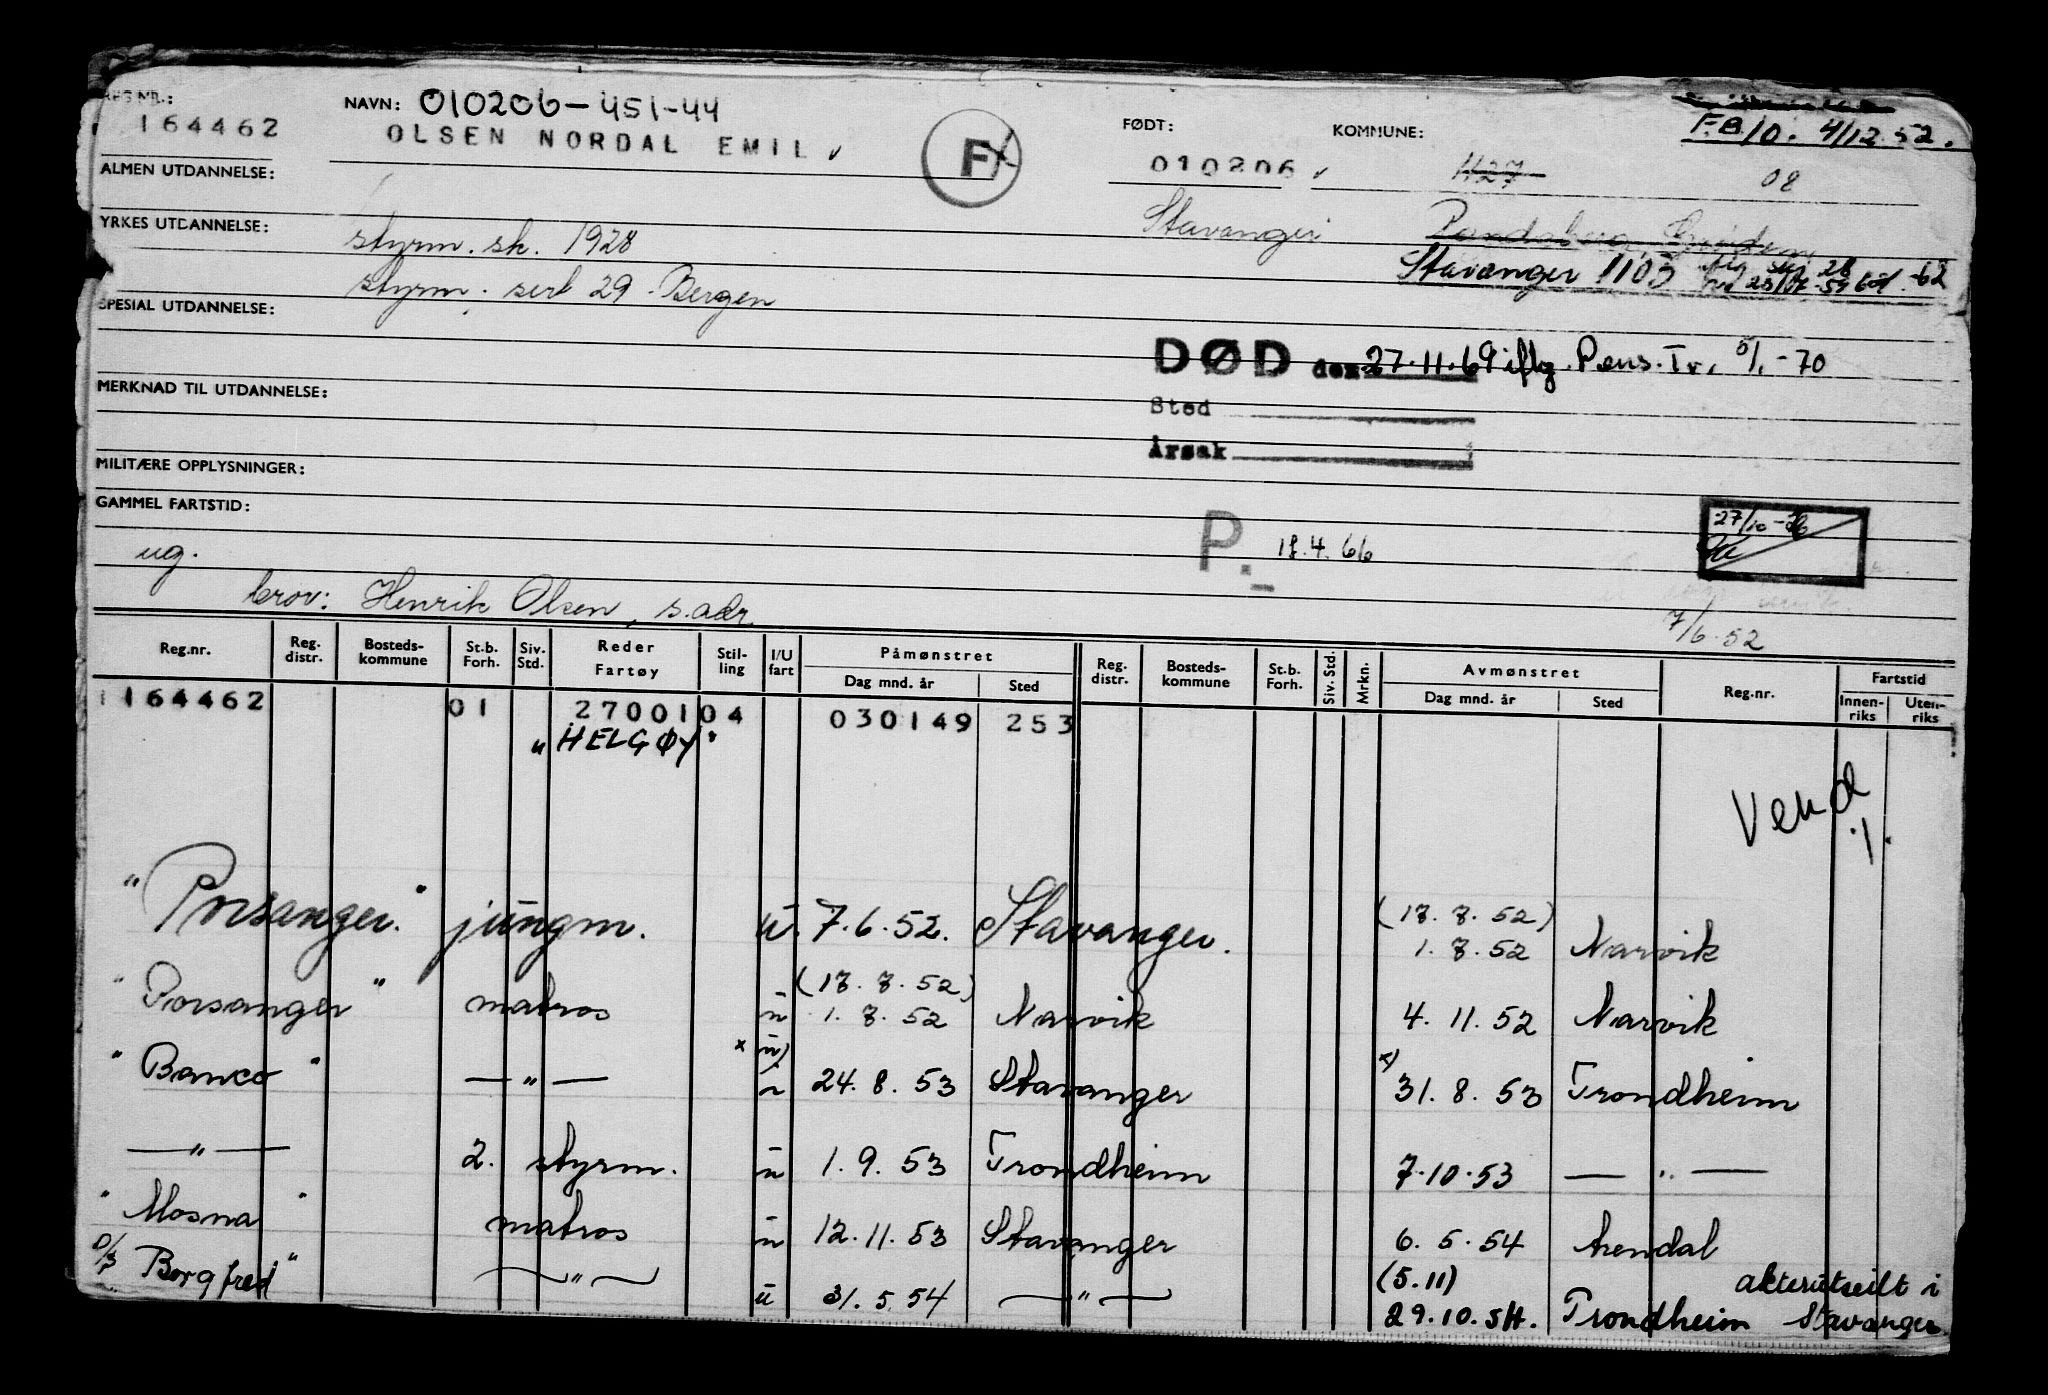 ARG NR.:
164462
NAVN: 010206-451-44
OLSEN NORDAL EMIL ✓
F
FØDT:
010206 ✓
KOMMUNE:
1127
F.B/0. 4/12.52.
08
ALMEN UTDANNELSE:
YRKES UTDANNELSE:
styrm. sk. 1928
Stavanger
styrm. sert 29 - Bergen
Stavanger 1103
SPESIAL UTDANNELSE:
DØD den 27.11.69 iflg. Pens.Tr. 5/1-70
MERKNAD TIL UTDANNELSE:
Sted
Årsak
MILITÆRE OPPLYSNINGER:
GAMMEL FARTSTID:
ug.
P.
18.4.66
27/10-
bror: Henrik Olsen, s.adr.
7/6.52
Reg.nr. Reg. distr. Bosteds-kommune St.b. Forh. Siv. Std. Reder Fartøy Stil-ling I/U fart Påmønstret Dag mnd. år Sted Reg. distr. Bosteds-kommune St.b. Forh. Siv. Std. Mrkn. Avmønstret Dag mnd. år Sted Reg.nr. Fartstid Innen-riks Uten-riks
164462 01 2700104 030149 253
"HELGØY"
Vend
./.
"Porsanger." jungm. u. 7.6.52. Stavanger. (17.7.52)
1.7.52 Narvik
"Porsanger" matros u (17.7.52)
1.7.52 Narvik 4.11.52 Narvik
"Banco" — " — x u) 24.8.53 Stavanger x) 31.8.53 Trondheim
— " — 2. styrm. u 1.9.53 Trondheim 7.10.53 — " —
"Mosna" matros u 12.11.53 Stavanger 6.5.54 Arendal
D/S Borgfred" — " — u 31.5.54 — " — (5.11)
29.10.54. Trondheim akterutseilt i
Stavanger.